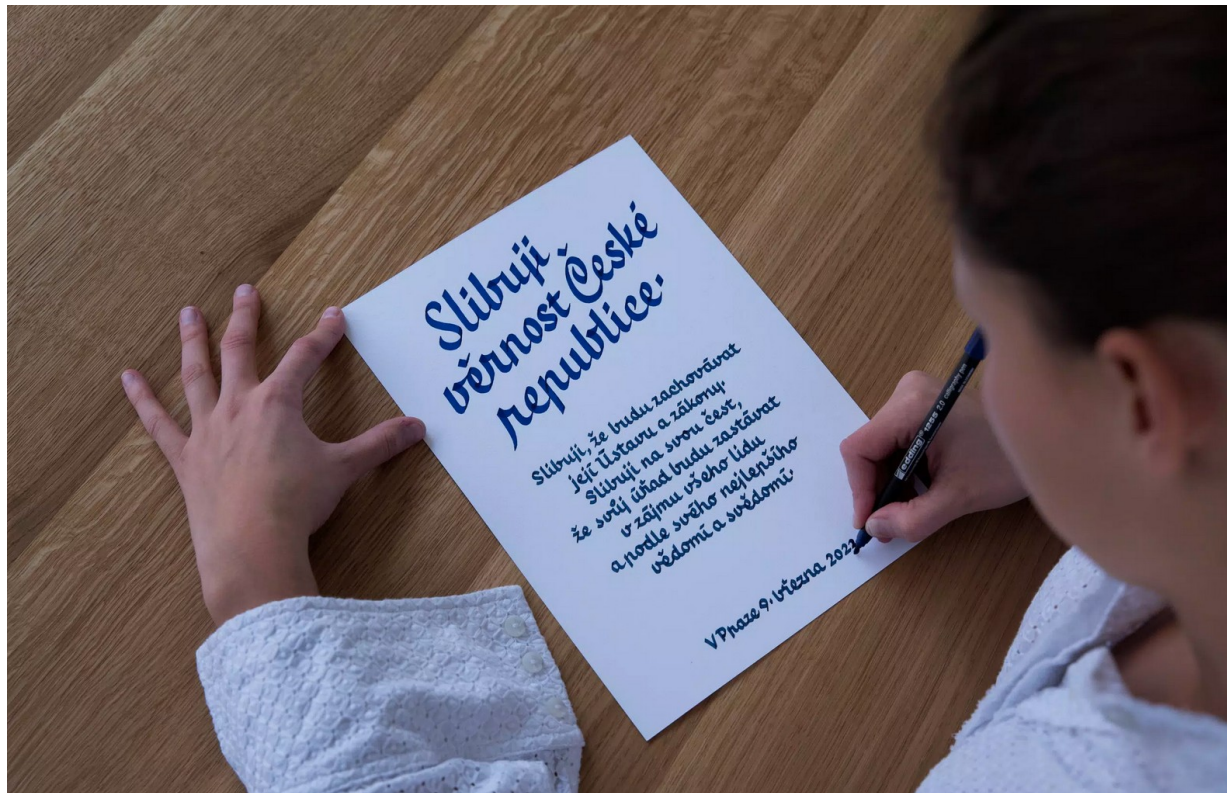 Slibuji
věrnost České
republice.
Slibuji, že budu zachovávat
její Ústavu a zákony.
Slibuji na svou čest,
že svůj úřad budu zastávat
v zájmu všeho lidu
a podle svého nejlepšího
vědomí a svědomí.
V Praze 9. března 2022
edding 1255 2.0 calligraphy pen